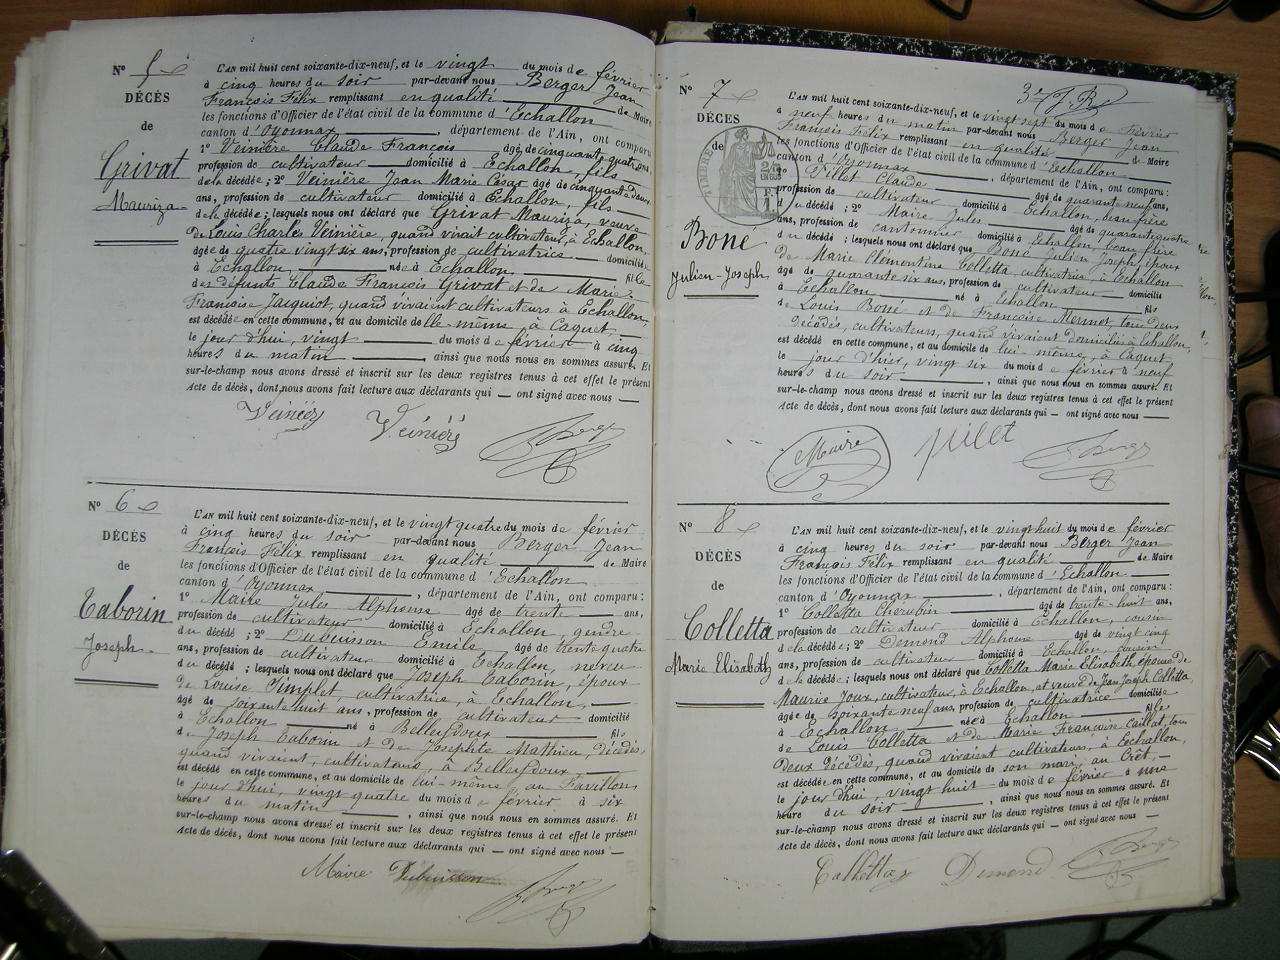 N° 5
DÉCÈS
de
Grivat
Mauriza
L'AN mil huit cent soixante-dix-neuf, et le vingt du mois de février
à cinq heures du soir par-devant nous Berger Jean
François Félix remplissant en qualité de Maire
les fonctions d'Officier de l'état civil de la commune d'Echallon
canton d'Oyonnax, département de l'Ain, ont comparu
1° Veinière Claude François âgé de cinquante quatre ans,
profession de cultivateur domicilié à Echallon, fils
de la décédée; 2° Veinière Jean Marie César âgé de cinquante deux
ans, profession de cultivateur domicilié à Echallon, fils
de la décédée; lesquels nous ont déclaré que Grivat Mauriza, veuve
de Louis Charles Veinière, quand vivait cultivateur, à Echallon
âgée de quatre vingt six ans, profession de cultivatrice domiciliée
à Echallon née à Echallon fille
des défunts Claude François Grivat et de Marie
Françoise Jacquiot, quand vivaient cultivateurs à Echallon,
est décédée en cette commune, et au domicile de elle même à Caquet
le jour d'hui, vingt du mois de février à cinq
heures du matin, ainsi que nous nous en sommes assuré. Et
sur-le-champ nous avons dressé et inscrit sur les deux registres tenus à cet effet le présent
Acte de décès, dont nous avons fait lecture aux déclarants qui ont signé avec nous
Veinière Veinière Berger
N° 6
DÉCÈS
de
Taborin
Joseph
L'AN mil huit cent soixante-dix-neuf, et le vingt quatre du mois de février
à cinq heures du soir par-devant nous Berger Jean
François Félix remplissant en qualité de Maire
les fonctions d'Officier de l'état civil de la commune d'Echallon
canton d'Oyonnax, département de l'Ain, ont comparu:
1° Maire Jules Alphonse âgé de trente ans,
profession de cultivateur domicilié à Echallon, gendre
du décédé; 2° Dubuisson Emile âgé de trente quatre
ans, profession de cultivateur domicilié à Echallon, neveu
du décédé; lesquels nous ont déclaré que Joseph Taborin, époux
de Louise Pimplet cultivatrice, à Echallon,
âgé de soixante huit ans, profession de cultivateur domicilié
à Echallon né à Belleydoux fils
de Joseph Taborin et de Josephte Mathieu décédés,
quand vivaient, cultivateurs, à Belleydoux,
est décédé en cette commune, et au domicile de lui-même, au Favillon
le jour d'hui, vingt quatre du mois de février à six
heures du matin, ainsi que nous nous en sommes assuré. Et
sur-le-champ nous avons dressé et inscrit sur les deux registres tenus à cet effet le présent
Acte de décès, dont nous avons fait lecture aux déclarants qui ont signé avec nous
Maire Dubuisson Berger
N° 7
DÉCÈS
de
Boné
Julien-Joseph
L'AN mil huit cent soixante-dix-neuf, et le vingt sept du mois de février
à neuf heures du matin par-devant nous Berger Jean
François Félix remplissant en qualité de Maire
les fonctions d'Officier de l'état civil de la commune d'Echallon
canton d'Oyonnax, département de l'Ain, ont comparu:
1° Villet Claude âgé de quarante neuf ans,
profession de cultivateur domicilié à Echallon, beau frère
du décédé; 2° Maire Jules âgé de quarante quatre
ans, profession de cantonnier domicilié à Echallon beau frère
du décédé; lesquels nous ont déclaré que Boné Julien Joseph, époux
de Marie Clémentine Colletta cultivateur à Echallon
âgé de quarante six ans, profession de cultivateur domicilié
à Echallon né à Echallon fils
de Louis Boné et de Françoise Mermet, tous deux
décédés, cultivateurs, quand vivaient domiciliés à Echallon,
est décédé en cette commune, et au domicile de lui-même, à Caquet,
le jour d'hier, vingt six du mois de février à neuf
heures du soir, ainsi que nous nous en sommes assuré. Et
sur-le-champ nous avons dressé et inscrit sur les deux registres tenus à cet effet le présent
Acte de décès, dont nous avons fait lecture aux déclarants qui ont signé avec nous
Maire Villet Berger
N° 8
DÉCÈS
de
Colletta
Marie Elisabeth
L'AN mil huit cent soixante-dix-neuf, et le vingt huit du mois de février
à cinq heures du soir par-devant nous Berger Jean
François Félix remplissant en qualité de Maire
les fonctions d'Officier de l'état civil de la commune d'Echallon
canton d'Oyonnax, département de l'Ain, ont comparu:
1° Colletta Cherubin âgé de trente huit ans,
profession de cultivateur domicilié à Echallon, cousin
de la décédée; 2° Démond Alphonse âgé de vingt cinq
ans, profession de cultivateur domicilié à Echallon, cousin
de la décédée; lesquels nous ont déclaré que Colletta Marie Elisabeth, épouse de
Maurice Joux, cultivateur, à Echallon, et veuve de Jean Joseph Colletta,
âgée de soixante neuf ans, profession de cultivatrice domiciliée
à Echallon née à Echallon fille
de Louis Colletta et de Marie Françoise Caillat, tous
deux décédés, quand vivaient cultivateurs, à Echallon,
est décédée en cette commune, et au domicile de son mari, au Crêt,
le jour d'hui, vingt huit du mois de février à une
heure du soir, ainsi que nous nous en sommes assuré. Et
sur-le-champ nous avons dressé et inscrit sur les deux registres tenus à cet effet le présent
Acte de décès, dont nous avons fait lecture aux déclarants qui ont signé avec nous
Colletta Démond Berger